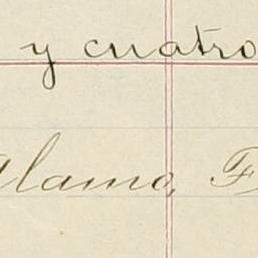 y cuatro
Alamo, F